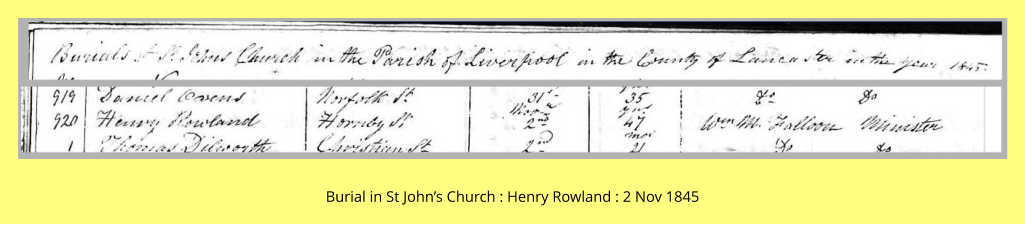 Burials at St Johns Church in the Parish of Liverpool in the County of Lancaster in the year 1845.
919 Daniel Owens Norfolk St 31st 35 Do Do
Novr yrs
920 Henry Rowland Hornby St 2nd 47 Wm M. Falloon Minister
mos
1 Thomas Dilworth Christian St 2nd 21 Do Do
Burial in St John’s Church : Henry Rowland : 2 Nov 1845